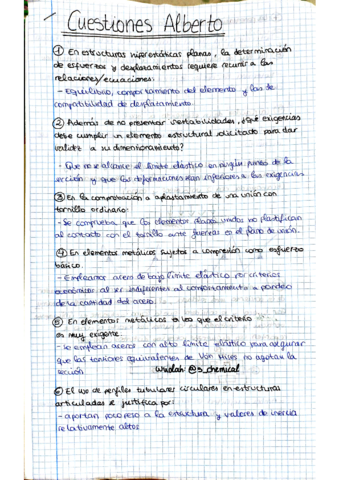 Cuestiones Alberto
① En estructuras hiperestáticas planas, la determinación
de esfuerzos y desplazamientos requiere recurrir a las
relaciones/ecuaciones:
- Equilibrio, comportamiento del elemento y las de
compatibilidad de desplazamiento.
② Además de no presentar inestabilidades, ¿Qué exigencias
debe cumplir un elemento estructural solicitado para dar
validez a su dimensionamiento?
- Que no se alcance el límite elástico en ningún punto de la
sección y que las deformaciones sean inferiores a las exigencias
③ En la comprobación a aplastamiento de una unión con
tornillo ordinario:
- Se comprueba que los elementos planos unidos no plastifican
al contacto con el tornillo ante fuerzas en el plano de unión.
④ En elementos metálicos sujetos a compresión como esfuerzo
básico.
- Emplearía acero de bajo límite elástico por criterios
económicos al ser indiferentes al comportamiento a pandeo
de la cantidad del acero.
⑤ En elementos metálicos a los que el criterio
es muy exigente.
- Se emplean aceros con alto límite elástico para asegurar
que las tensiones equivalentes de Von Mises no agotan la
sección
Wuolah @s_chemical
⑥ El uso de perfiles tubulares circulares en estructuras
articuladas se justifica por:
- aportan poco peso a la estructura y valores de inercia
relativamente altos